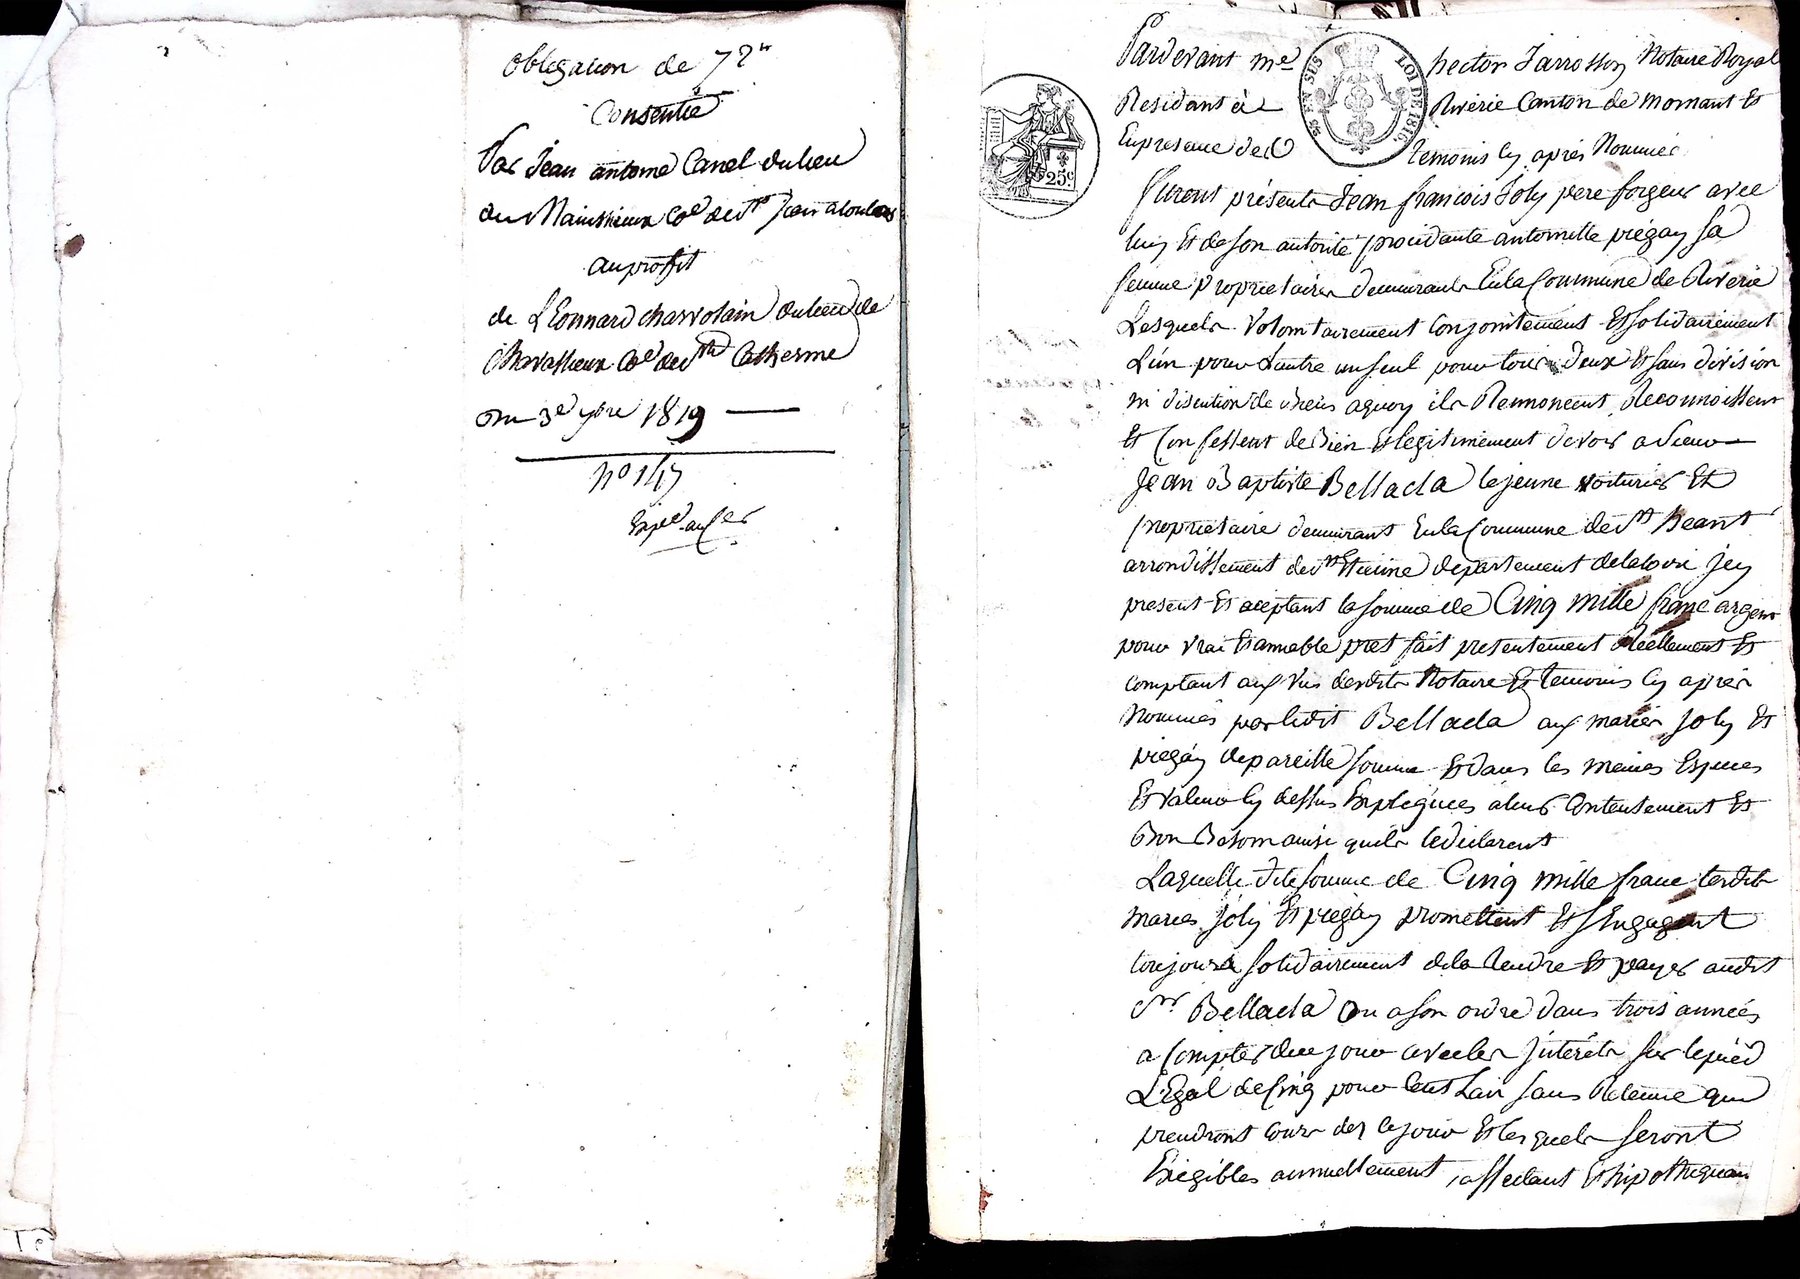 obligation de 72#
Consentie
Par Jean antoine Canel du lieu
du Mainshieux Coe de St Jean atoulas
au proffit
de LEonnard charvolain du lieu de
Chavassieux Coe de Ste Catherine
du 3e 9bre 1819
No 147
Expée
Pardevant me hector Jarrosson Notaire Royal
Residant à Riverie Canton de mornant Et
En presence des temoins Cy après Nommés
EN SUS LOI DE 1816.
25c
furent présents Jean francois Joly pere forgeur avec
luy Et de son autorité procédante antoinette piégay sa
femme proprietaires demeurants En la Commune de Riverie
Lesquels volontairement Conjointement Et solidairement
L'un pour L'autre un seul pour tous deux Et sans division
ni discution de biens aquoy ils Renoncent, Reconnoissent
Et Confessent de Bien Et legitimement devoir a sieur
Jean Baptiste Bellacla le jeune voiturier Et
proprietaire demeurant En la Commune de St heant
arrondissement de St Etienne departement de la loire Jcy
present Et aceptant la somme de Cinq mille franc argent
pour vrai Et amiable prêt fait presentement Réellement Et
comptant aux vus desdits Notaire Et temoins Cy après
Nommés par ledit Bellacla aux mariés Joly Et
piegáy de pareille somme Et dans les mêmes Especes
Et valeur Cy dessus Expliquées a leur Contentement Et
Bon Besoin ainsi quils le déclarent
Laquelle dite somme de Cinq mille franc lesdits
maries Joly Et piegay promettent Et s'Engagent
toujours solidairement de la Rendre Et payer audit
Sr Bellacla Ou a son ordre dans trois années
a Compter de ce jour avec les jntérêts sur le piéd
LEgal de Cinq pour Cent L'an sans Retenue qui
prendront cours dez ce jour Et lesquels seront
Exigibles annuellement, affectant Et hipothequan